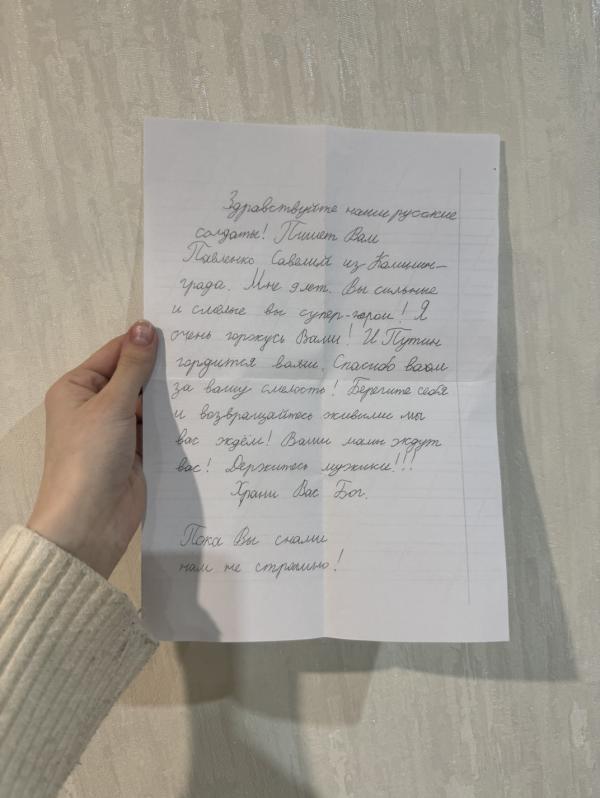 Здравствуйте наши русские
солдаты! Пишет Вам
Павленко Савелий из Калинин-
града. Мне 9 лет. Вы сильные
и смелые вы супер-герои! Я
очень горжусь Вами! И Путин
гордится вами. Спасибо вам
за вашу смелость! Берегите себя
и возвращайтесь живыми мы
вас ждём! Ваши мамы ждут
вас! Держитесь мужики!!!
Храни Вас Бог.
Пока Вы снами
нам не страшно!